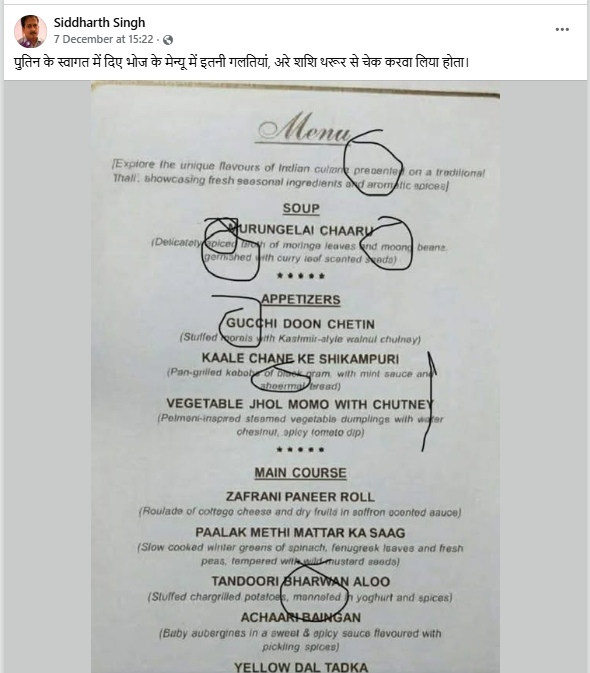 Siddharth Singh
7 December at 15:22 ·
पुतिन के स्वागत में दिए भोज के मेन्यू में इतनी गलतियां, अरे शशि थरूर से चेक करवा लिया होता।
Menu
[Explore the unique flavours of Indian cuisine presented on a traditional
'Thali', showcasing fresh seasonal ingredients and aromatic spices]
SOUP
MURUNGELAI CHAARU
(Delicately spiced broth of moringa leaves and moong beans
garnished with curry leaf scented seeds)
*****
APPETIZERS
GUCCHI DOON CHETIN
(Stuffed morels with Kashmir-style walnut chutney)
KAALE CHANE KE SHIKAMPURI
(Pan-grilled kebobs of black gram, with mint sauce and
sheermal bread)
VEGETABLE JHOL MOMO WITH CHUTNEY
(Pelmeni-inspired steamed vegetable dumplings with water
chestnut, spicy tomato dip)
*****
MAIN COURSE
ZAFRANI PANEER ROLL
(Roulade of cottage cheese and dry fruits in saffron scented sauce)
PAALAK METHI MATTAR KA SAAG
(Slow cooked winter greens of spinach, fenugreek leaves and fresh
peas, tempered with wild mustard seeds)
TANDOORI BHARWAN ALOO
(Stuffed chargrilled potatoes, in yoghurt and spices)
ACHAARI BAINGAN
(Baby aubergines in a sweet & spicy sauce flavoured with
pickling spices)
YELLOW DAL TADKA